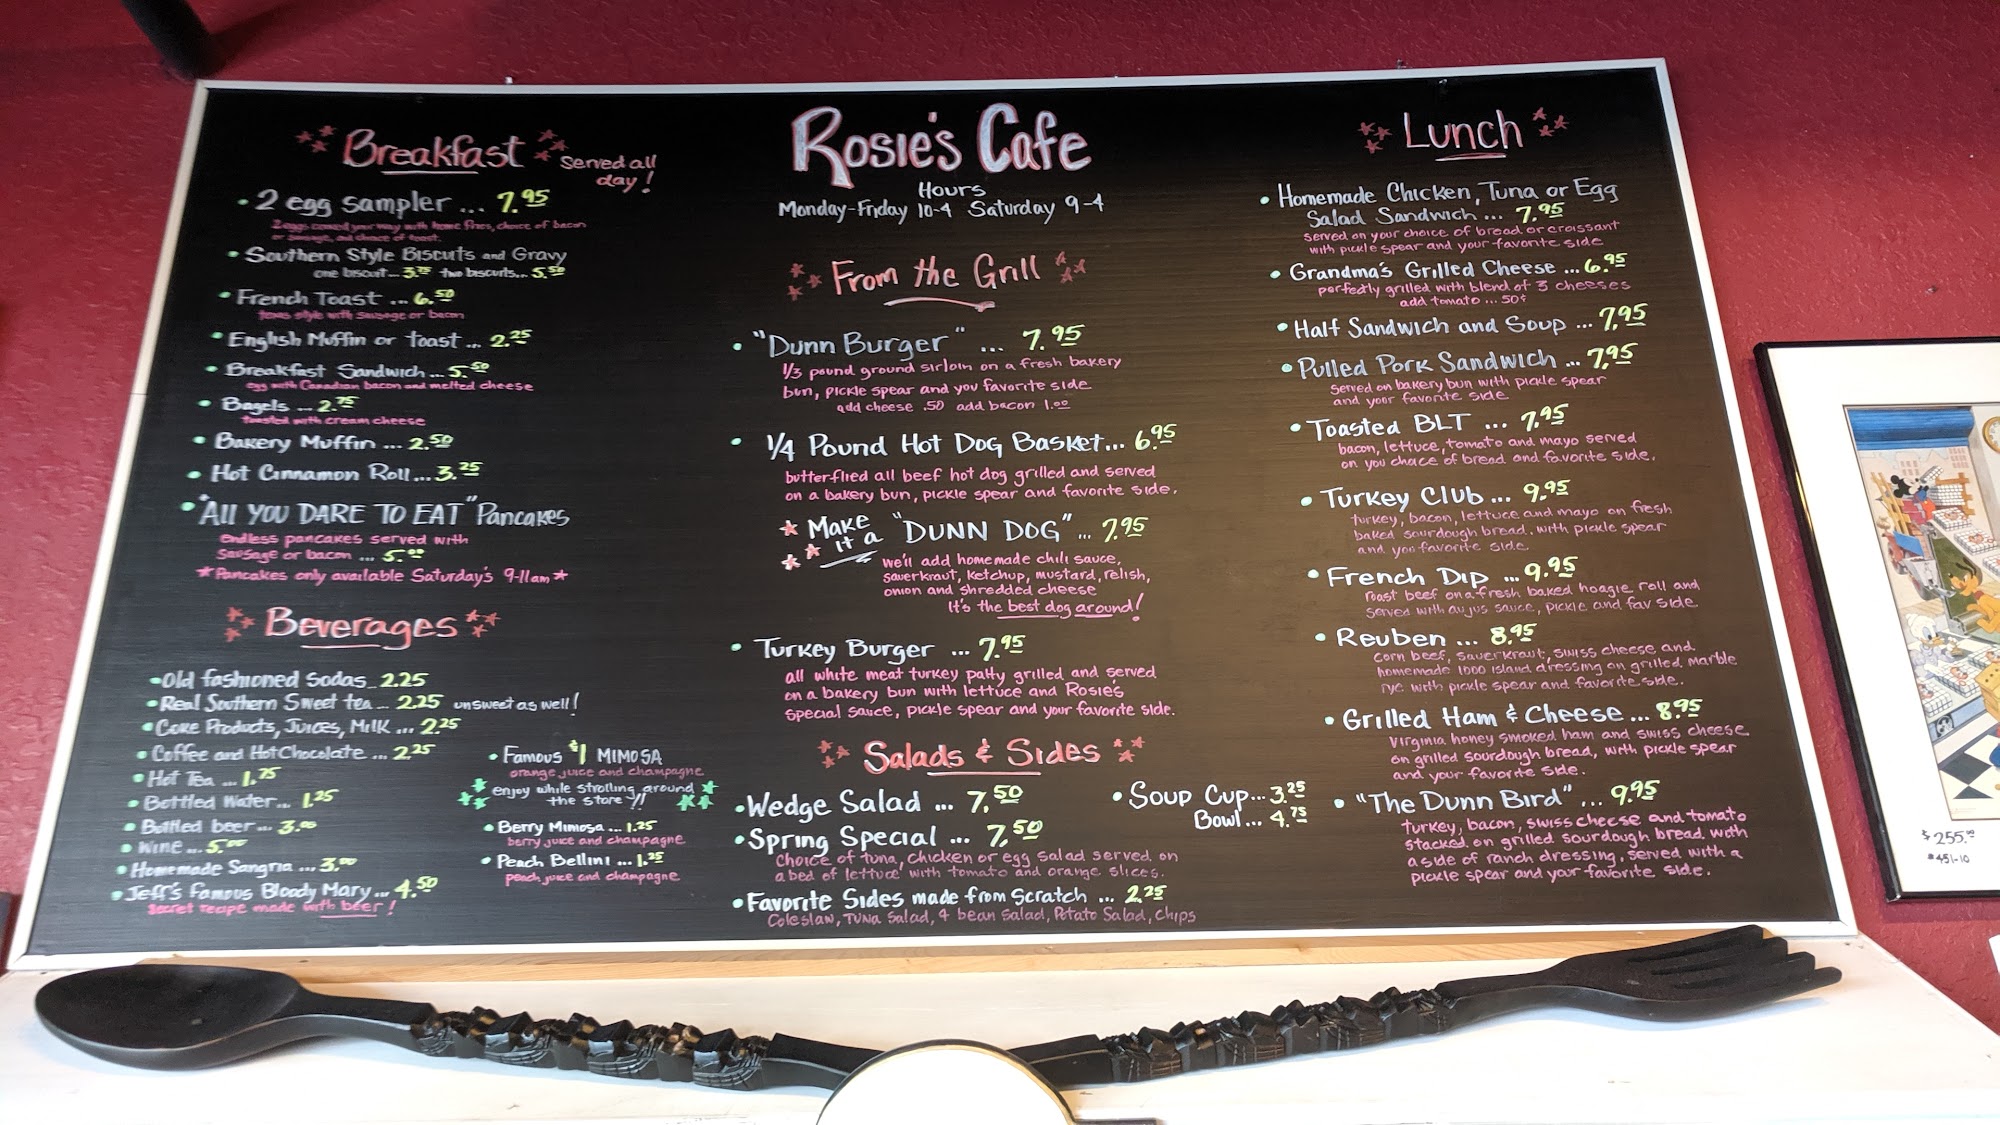 Breakfast
Served all
day!
• 2 egg sampler ... 7.95
2 eggs cooked your way with home fries, choice of bacon
or sausage, and choice of toast.
• Southern Style Biscuits and Gravy
one biscuit... 3.75 two biscuits... 5.50
• French Toast ... 6.50
texas style with sausage or bacon
• English Muffin or toast ... 2.25
• Breakfast Sandwich ... 5.50
egg with Canadian bacon and melted cheese
• Bagels ... 2.75
toasted with cream cheese
• Bakery Muffin ... 2.50
• Hot Cinnamon Roll ... 3.25
• "All YOU DARE TO EAT" Pancakes
endless pancakes served with
sausage or bacon ... 5.00
*Pancakes only available Saturday's 9-11am*
Beverages
• Old fashioned Sodas .. 2.25
• Real Southern Sweet tea ... 2.25 unsweet as well!
• Coke Products, Juices, Milk ... 2.25
• Coffee and Hot Chocolate ... 2.25
• Hot Tea ... 1.75
• Bottled Water ... 1.25
• Bottled beer ... 3.00
• Wine ... 5.00
• Homemade Sangria ... 3.00
• Jeff's Famous Bloody Mary ... 4.50
secret recipe made with beer!
• Famous $1 MIMOSA
orange juice and champagne
enjoy while strolling around
the store!!
• Berry Mimosa ... 1.25
berry juice and champagne
• Peach Bellini ... 1.25
peach juice and champagne
Rosie's Cafe
Hours
Monday-Friday 10-4 Saturday 9-4
From the Grill
• "Dunn Burger" ... 7.95
1/3 pound ground sirloin on a fresh bakery
bun, pickle spear and you favorite side
add cheese .50 add bacon 1.00
• 1/4 Pound Hot Dog Basket... 6.95
butterflied all beef hot dog grilled and served
on a bakery bun, pickle spear and favorite side.
Make
it a "DUNN DOG" ... 7.95
we'll add homemade chili sauce,
sauerkraut, ketchup, mustard, relish,
onion and shredded cheese
It's the best dog around!
• Turkey Burger ... 7.95
all white meat turkey patty grilled and served
on a bakery bun with lettuce and Rosie's
special sauce, pickle spear and your favorite side.
Salads & Sides
• Wedge Salad ... 7.50
• Spring Special ... 7.50
Choice of tuna, chicken or egg salad served on
a bed of lettuce with tomato and orange slices.
• Favorite Sides made from Scratch ... 2.25
Coleslaw, Tuna Salad, 4 bean Salad, Potato Salad, Chips
• Soup Cup... 3.25
Bowl... 4.75
Lunch
• Homemade Chicken, Tuna or Egg
Salad Sandwich ... 7.95
served on your choice of bread or croissant
with pickle spear and your favorite side
• Grandma's Grilled Cheese ... 6.95
perfectly grilled with blend of 3 cheeses
add tomato ... 50¢
• Half Sandwich and Soup ... 7.95
• Pulled Pork Sandwich ... 7.95
served on bakery bun with pickle spear
and your favorite side
• Toasted BLT ... 7.95
bacon, lettuce, tomato and mayo served
on you choice of bread and favorite side.
• Turkey Club ... 9.95
turkey, bacon, lettuce and mayo on fresh
baked sourdough bread. with pickle spear
and you favorite side
• French Dip ... 9.95
roast beef on a fresh baked hoagie roll and
served with au jus sauce, pickle and fav side
• Reuben ... 8.95
corn beef, sauerkraut, swiss cheese and
homemade 1000 island dressing on grilled marble
rye with pickle spear and favorite side.
• Grilled Ham & Cheese ... 8.95
Virginia honey smoked ham and swiss cheese
on grilled sourdough bread, with pickle spear
and your favorite side.
• "The Dunn Bird" ... 9.95
turkey, bacon, swiss cheese and tomato
stacked on grilled sourdough bread with
a side of ranch dressing. served with a
pickle spear and your favorite side.
$255.00
#451-10